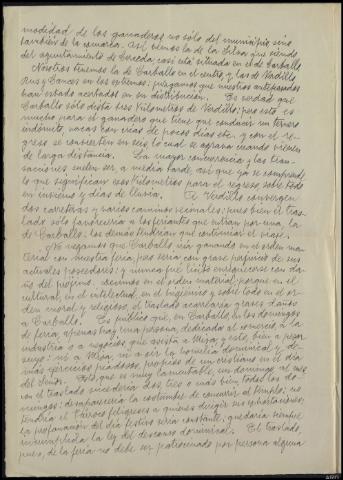 modidad de los ganaderos no sólo del municipio sino
también de la comarca. Así vemos la de la Silva que siendo
del ayuntamiento de Cerceda casi está situada en el de Carballo.
Nosotros tenemos la de Carballo en el centro y las de Verdillo
Rus y Cances en los extremos: juzgamos que nuestros antepasados
han estado acertados en su distribución. Es verdad que
Carballo sólo dista tres kilómetros de Verdillo; pero esto es
mucho para el ganadero que tiene que conducir un ternero
indómito, vacas con crías de pocos días etc. y con el re-
greso se convierten en seis, lo cual se agrava cuando vienen
de larga distancia. La mayor concurrencia y las tran-
saciones suelen ser a media tarde, así que ya se comprende
lo que significan kilómetros para el regreso, sobre todo
en invierno y días de lluvia. A Verdillo convergen
dos carreteras y varios caminos vecinales: pues bien el tras-
lado sólo favorecería a los feriantes que entran por una, la
de Carballo; los demás tendrían que continuar el viaje.
No negamos que Carballo iría ganando en el orden ma-
terial con nuestra feria, pero sería con grave perjuicio de sus
actuales poseedores; y nunca fue lícito enriquecerse con da-
ño del prójimo. Decimos en el orden material, porque en el
cultural, en el intelectual, en el higiénico y sobre todo en el or-
den moral y religioso, el traslado acarrearía graves daños
a Carballo. Es público que, en Carballo, en los domingos
de feria, apenas hay una persona, dedicada al comercio, a la
industria o a negocios que asista a Misa; y esto, bien a pesar
suyo: ni a Misa, ni a oir la homilía dominical y, de-
más ejercicios piadosos, propios de un cristiano en el día
del Señor. Esto que es muy lamentable, un domingo, al mes
con el traslado sucedería dos, tres o más bien todos los do-
mingos: desaparecería la costumbre de concurrir al templo; no
tendría el Párroco feligreses a quienes dirigir sus exhortaciones;
la profanación del día festivo sería constante; quedaría siempre
incumplida la ley del descanso dominical. El traslado,
pues, de la feria no debe ser patrocinado por persona alguna